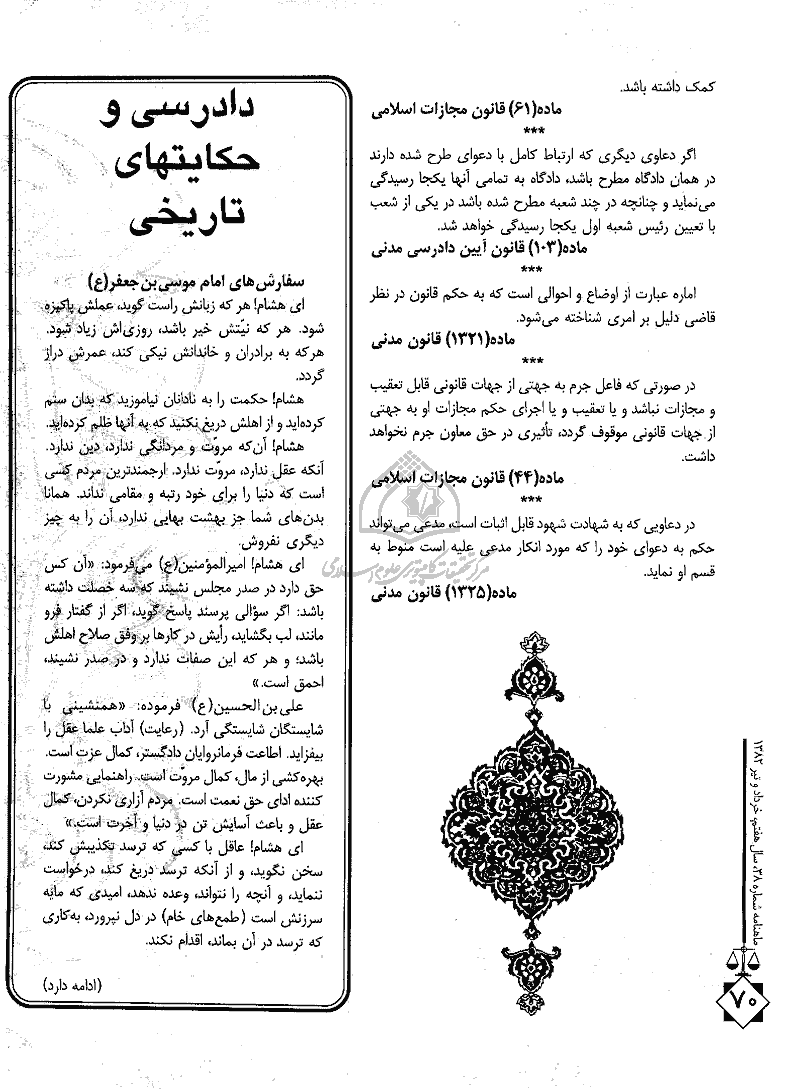 کمک داشته باشد.
ماده(۶۱) قانون مجازات اسلامی
***
اگر دعاوی دیگری که ارتباط کامل با دعوای طرح شده دارند
در همان دادگاه مطرح باشد، دادگاه به تمامی آنها یکجا رسیدگی
می‌نماید و چنانچه در چند شعبه مطرح شده باشد در یکی از شعب
با تعیین رئیس شعبه اول یکجا رسیدگی خواهد شد.
ماده(۱۰۳) قانون آیین دادرسی مدنی
***
اماره عبارت از اوضاع و احوالی است که به حکم قانون در نظر
قاضی دلیل بر امری شناخته می‌شود.
ماده(۱۳۲۱) قانون مدنی
***
در صورتی که فاعل جرم به جهتی از جهات قانونی قابل تعقیب
و مجازات نباشد و یا تعقیب و یا اجرای حکم مجازات او به جهتی
از جهات قانونی موقوف گردد، تأثیری در حق معاون جرم نخواهد
داشت.
ماده(۴۴) قانون مجازات اسلامی
***
در دعاویی که به شهادت شهود قابل اثبات است، مدعی می‌تواند
حکم به دعوای خود را که مورد انکار مدعی علیه است منوط به
قسم او نماید.
ماده(۱۳۲۵) قانون مدنی
دادرسی و
حکایتهای
تاریخی
سفارش‌های امام موسی‌بن‌جعفر(ع)
ای هشام! هر که زبانش راست گوید، عملش پاکیزه
شود. هر که نیّتش خیر باشد، روزی‌اش زیاد شود.
هرکه به برادران و خاندانش نیکی کند، عمرش دراز
گردد.
هشام! حکمت را به نادانان نیاموزید که بدان ستم
کرده‌اید و از اهلش دریغ نکنید که به آنها ظلم کرده‌اید.
هشام! آن‌که مروّت و مردانگی ندارد، دین ندارد.
آنکه عقل ندارد، مروّت ندارد. ارجمندترین مردم کسی
است که دنیا را برای خود رتبه و مقامی نداند. همانا
بدن‌های شما جز بهشت بهایی ندارد، آن را به چیز
دیگری نفروش.
ای هشام! امیرالمؤمنین(ع) می‌فرمود: «آن کس
حق دارد در صدر مجلس نشیند که سه خصلت داشته
باشد: اگر سؤالی پرسند پاسخ گوید، اگر از گفتار فرو
مانند، لب بگشاید، رأیش در کارها بر وفق صلاح اهلش
باشد؛ و هر که این صفات ندارد و در صدر نشیند،
احمق است.»
علی‌بن‌الحسین(ع) فرموده: «همنشینی با
شایستگان شایستگی آرد. (رعایت) آداب علما عقل را
بیفزاید. اطاعت فرمانروایان دادگستر، کمال عزت است.
بهره‌کشی از مال، کمال مروّت است. راهنمایی مشورت
کننده ادای حق نعمت است. مردم آزاری نکردن، کمال
عقل و باعث آسایش تن در دنیا و آخرت است.»
ای هشام! عاقل با کسی که ترسد تکذیبش کند،
سخن نگوید، و از آنکه ترسد دریغ کند، درخواست
ننماید، و آنچه را نتواند، وعده ندهد، امیدی که مایه
سرزنش است (طمع‌های خام) در دل نپرورد، به‌کاری
که ترسد در آن بماند، اقدام نکند.
(ادامه دارد)
مرکز تحقیقات کامپیوتری علوم اسلامی
ماهنامه شماره ۳۸، سال هفتم، خرداد و تیر ۱۳۸۲
۷۰